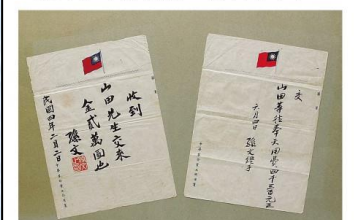 收到
山田先生交来
金贰萬圓也
孫文
民國四年二月二日
交
山田等往奉天用費四千三百元正
六月四日 孫文經手